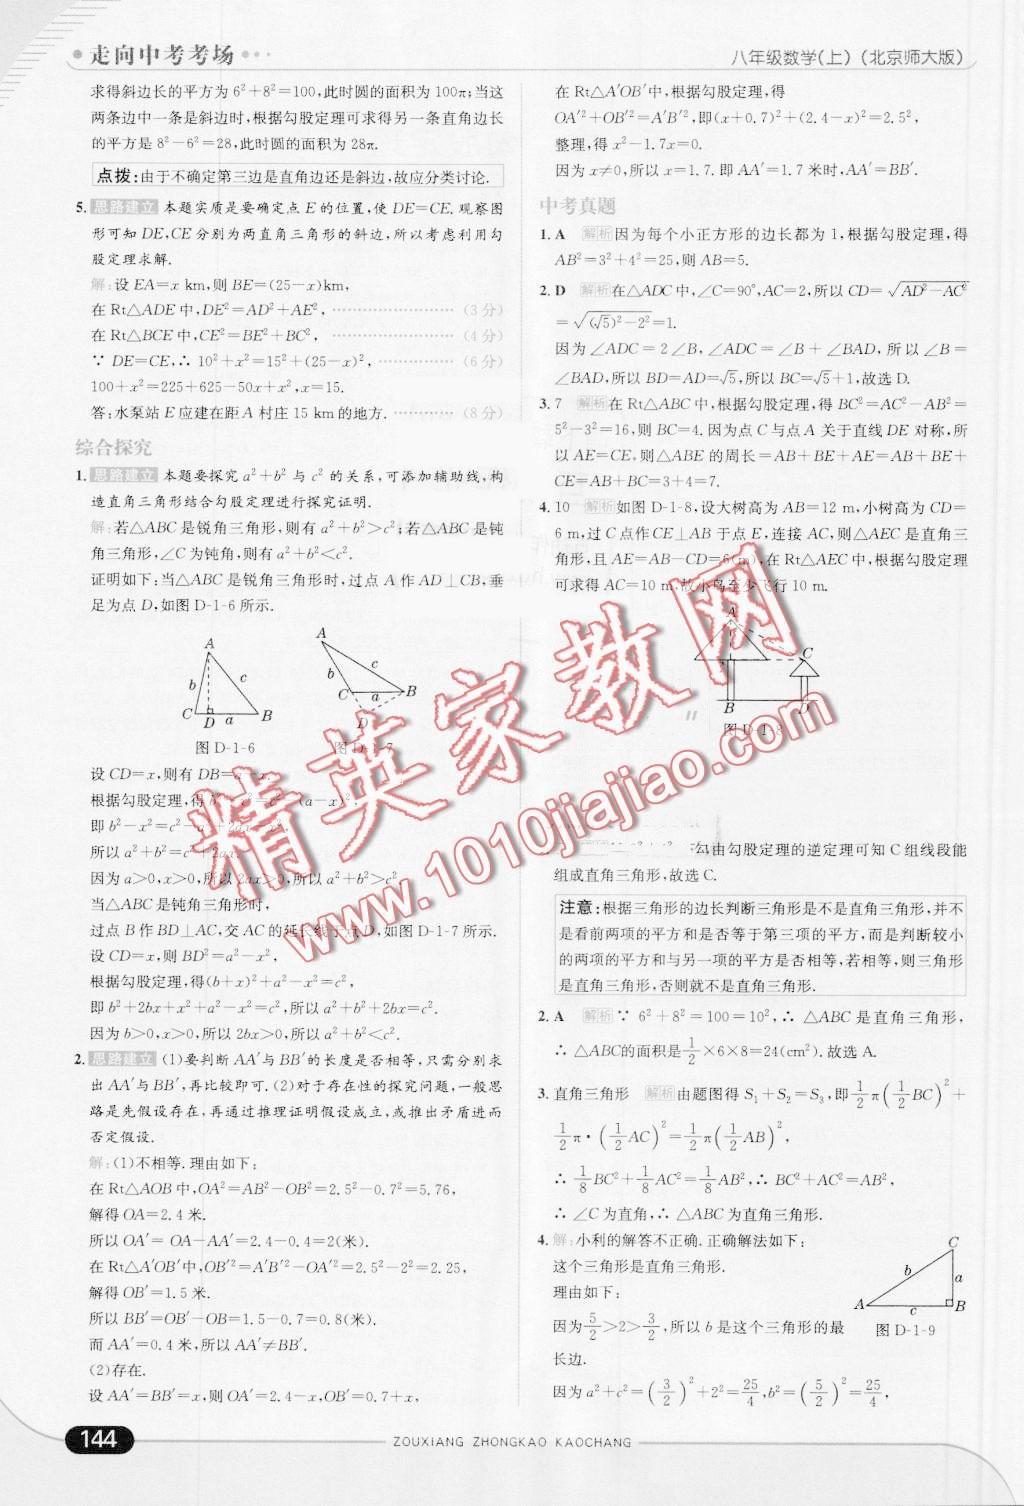 走向中考考场
八年级数学(上)(北京师大版)
求得斜边长的平方为6²+8²=100,此时圆的面积为100π;当这
两条边中一条是斜边时,根据勾股定理可求得另一条直角边长
的平方是8²-6²=28,此时圆的面积为28π.
点拨:由于不确定第三边是直角边还是斜边,故应分类讨论.
5. 思路建立 本题实质是要确定点E的位置,使DE=CE.观察图
形可知DE,CE分别为两直角三角形的斜边,所以考虑利用勾
股定理求解.
解:设EA=x km,则BE=(25-x)km,
在Rt△ADE中,DE²=AD²+AE², ………………… (3分)
在Rt△BCE中,CE²=BE²+BC², ………………… (4分)
∵ DE=CE,∴ 10²+x²=15²+(25-x)², …………… (6分)
100+x²=225+625-50x+x²,x=15.
答:水泵站E应建在距A村庄15 km的地方. ………… (8分)
综合探究
1. 思路建立 本题要探究a²+b²与c²的关系,可添加辅助线,构
造直角三角形结合勾股定理进行探究证明.
解:若△ABC是锐角三角形,则有a²+b²>c²;若△ABC是钝
角三角形,∠C为钝角,则有a²+b²<c².
证明如下:当△ABC是锐角三角形时,过点A作AD⊥CB,垂
足为点D,如图D-1-6所示.
A
b
c
C
D
a
B
A
b
c
C
a
B
D
图D-1-6
图D-1-7
设CD=x,则有DB=a-x
根据勾股定理,得b²-x²=c²-(a-x)²,
即b²-x²=c²-a²+2ax-x².
所以a²+b²=c²+2ax.
因为a>0,x>0,所以2ax>0,所以a²+b²>c².
当△ABC是钝角三角形时,
过点B作BD⊥AC,交AC的延长线于点D,如图D-1-7所示.
设CD=x,则BD²=a²-x²,
根据勾股定理,得(b+x)²+a²-x²=c²,
即b²+2bx+x²+a²-x²=c²,所以a²+b²+2bx=c².
因为b>0,x>0,所以2bx>0,所以a²+b²<c².
2. 思路建立 (1)要判断AA′与BB′的长度是否相等,只需分别求
出AA′与BB′,再比较即可.(2)对于存在性的探究问题,一般思
路是先假设存在,再通过推理证明假设成立,或推出矛盾进而
否定假设.
解:(1)不相等.理由如下:
在Rt△AOB中,OA²=AB²-OB²=2.5²-0.7²=5.76,
解得OA=2.4米.
所以OA′= OA-AA′=2.4-0.4=2(米).
在Rt△A′OB′中,OB′²=A′B′²-OA′²=2.5²-2²=2.25,
解得OB′=1.5米.
所以BB′=OB′-OB=1.5-0.7=0.8(米).
而AA′=0.4米,所以AA′≠BB′.
(2)存在.
设AA′=BB′=x,则OA′=2.4-x,OB′=0.7+x,
在Rt△A′OB′中,根据勾股定理,得
OA′²+OB′²=A′B′²,即(x+0.7)²+(2.4-x)²=2.5²,
整理,得x²-1.7x=0.
因为x≠0,所以x=1.7.即AA′=1.7米时,AA′=BB′.
中考真题
1. A 解析 因为每个小正方形的边长都为1,根据勾股定理,得
AB²=3²+4²=25,则AB=5.
2. D 解析 在△ADC中,∠C=90°,AC=2,所以CD=√(AD²-AC²)
=√((√5)²-2²)=1.
因为∠ADC=2∠B,∠ADC=∠B+∠BAD,所以∠B=
∠BAD,所以BD=AD=√5,所以BC=√5+1,故选D.
3. 7 解析 在Rt△ABC中,根据勾股定理,得BC²=AC²-AB²=
5²-3²=16,则BC=4.因为点C与点A关于直线DE对称,所
以AE=CE,则△ABE的周长=AB+BE+AE=AB+BE+
CE=AB+BC=3+4=7.
4. 10 解析 如图D-1-8,设大树高为AB=12 m,小树高为CD=
6 m,过C点作CE⊥AB于点E,连接AC,则△AEC是直角三
角形,且AE=AB-CD=6(m),在Rt△AEC中,根据勾股定理
可求得AC=10 m,故小鸟至少飞行10 m.
A
C
B
D
图D-1-8
勾由勾股定理的逆定理可知C组线段能
组成直角三角形,故选C.
注意:根据三角形的边长判断三角形是不是直角三角形,并不
是看前两项的平方和是否等于第三项的平方,而是判断较小
的两项的平方和与另一项的平方是否相等,若相等,则三角形
是直角三角形,否则就不是直角三角形.
2. A 解析 ∵ 6²+8²=100=10²,∴ △ABC是直角三角形,
∴ △ABC的面积是1/2×6×8=24(cm²).故选A.
3. 直角三角形 解析 由题图得S₁+S₂=S₃,即1/2π(1/2BC)²+
1/2π·(1/2AC)²=1/2π(1/2AB)²,
∴ 1/8BC²+1/8AC²=1/8AB²,∴ BC²+AC²=AB²,
∴ ∠C为直角,∴ △ABC为直角三角形.
4. 解:小利的解答不正确.正确解法如下:
这个三角形是直角三角形.
理由如下:
因为5/2>2>3/2,所以b是这个三角形的最
长边.
因为a²+c²=(3/2)²+2²=25/4,b²=(5/2)²=25/4,
C
b
a
A
c
B
图D-1-9
精英家教网
www.1010jiajiao.com
144
ZOUXIANG ZHONGKAO KAOCHANG